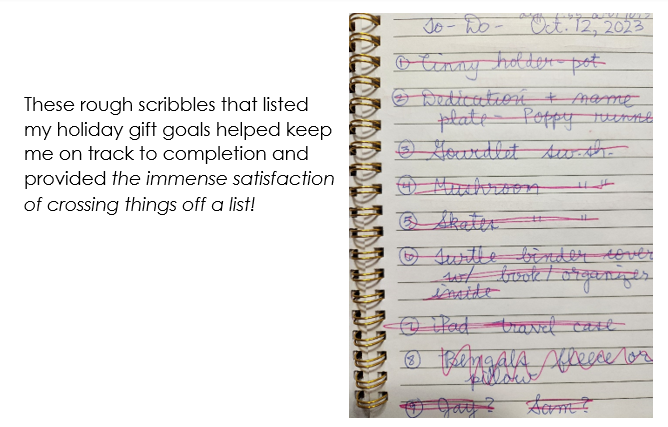 These rough scribbles that listed
my holiday gift goals helped keep
me on track to completion and
provided the immense satisfaction
of crossing things off a list!
To-Do- Oct. 12, 2023
① Tinny holder-pot
② Dedication + name
plate - Poppy runne
③ Gourdlet sw-sh-
④ Mushroom " "
⑤ Skates " "
⑥ Turtle binder cover
w/ book/organizer
inside
⑦ iPad travel case
⑧ Bengals fleece or
pillow
⑨ Jay? Sam?